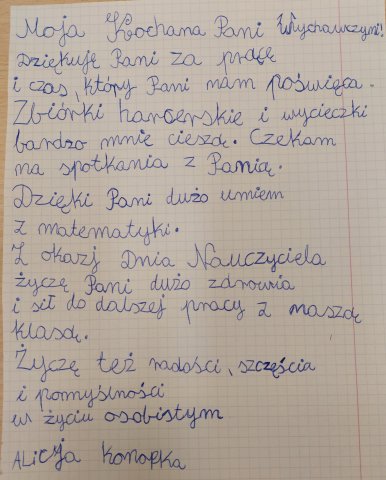 Moja Kochana Pani Wychawczyni!
Dziękuję Pani za pracę
i czas, który Pani nam poświęca.
Zbiórki harcerskie i wycieczki
bardzo mnie cieszą. Czekam
na spotkania z Panią.
Dzięki Pani dużo umiem
z matematyki.
Z okazj Dnia Nauczyciela
życzę Pani dużo zdrowia
i sił do dalszej pracy z naszdą
klasą.
Życzę też radości, szczęścia
i pomyślności
w życiu osobistym
ALicyja Konopka